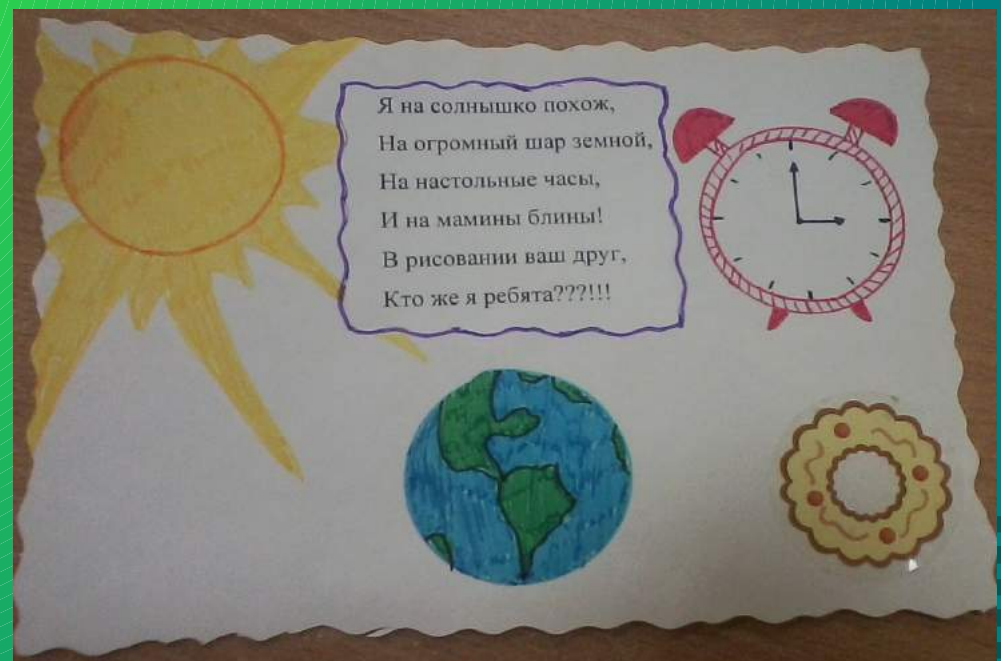 Я на солнышко похож,
На огромный шар земной,
На настольные часы,
И на мамины блины!
В рисовании ваш друг,
Кто же я ребята???!!!